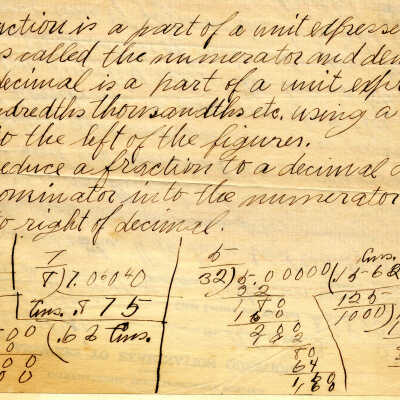 action is a part of a unit expresse
s called the numerator and den
decimal is a part of a unit expr
ndredths thousandths etc. using a
to the left of the figures.
educe a fraction to a decimal d
nominator into the numerator
to right of decimal.
7
8)7.00040
Ans. .875
(.62 Ans.
5
32)5.00000(.1562
Ans.
32
180
160
64
125
1000)